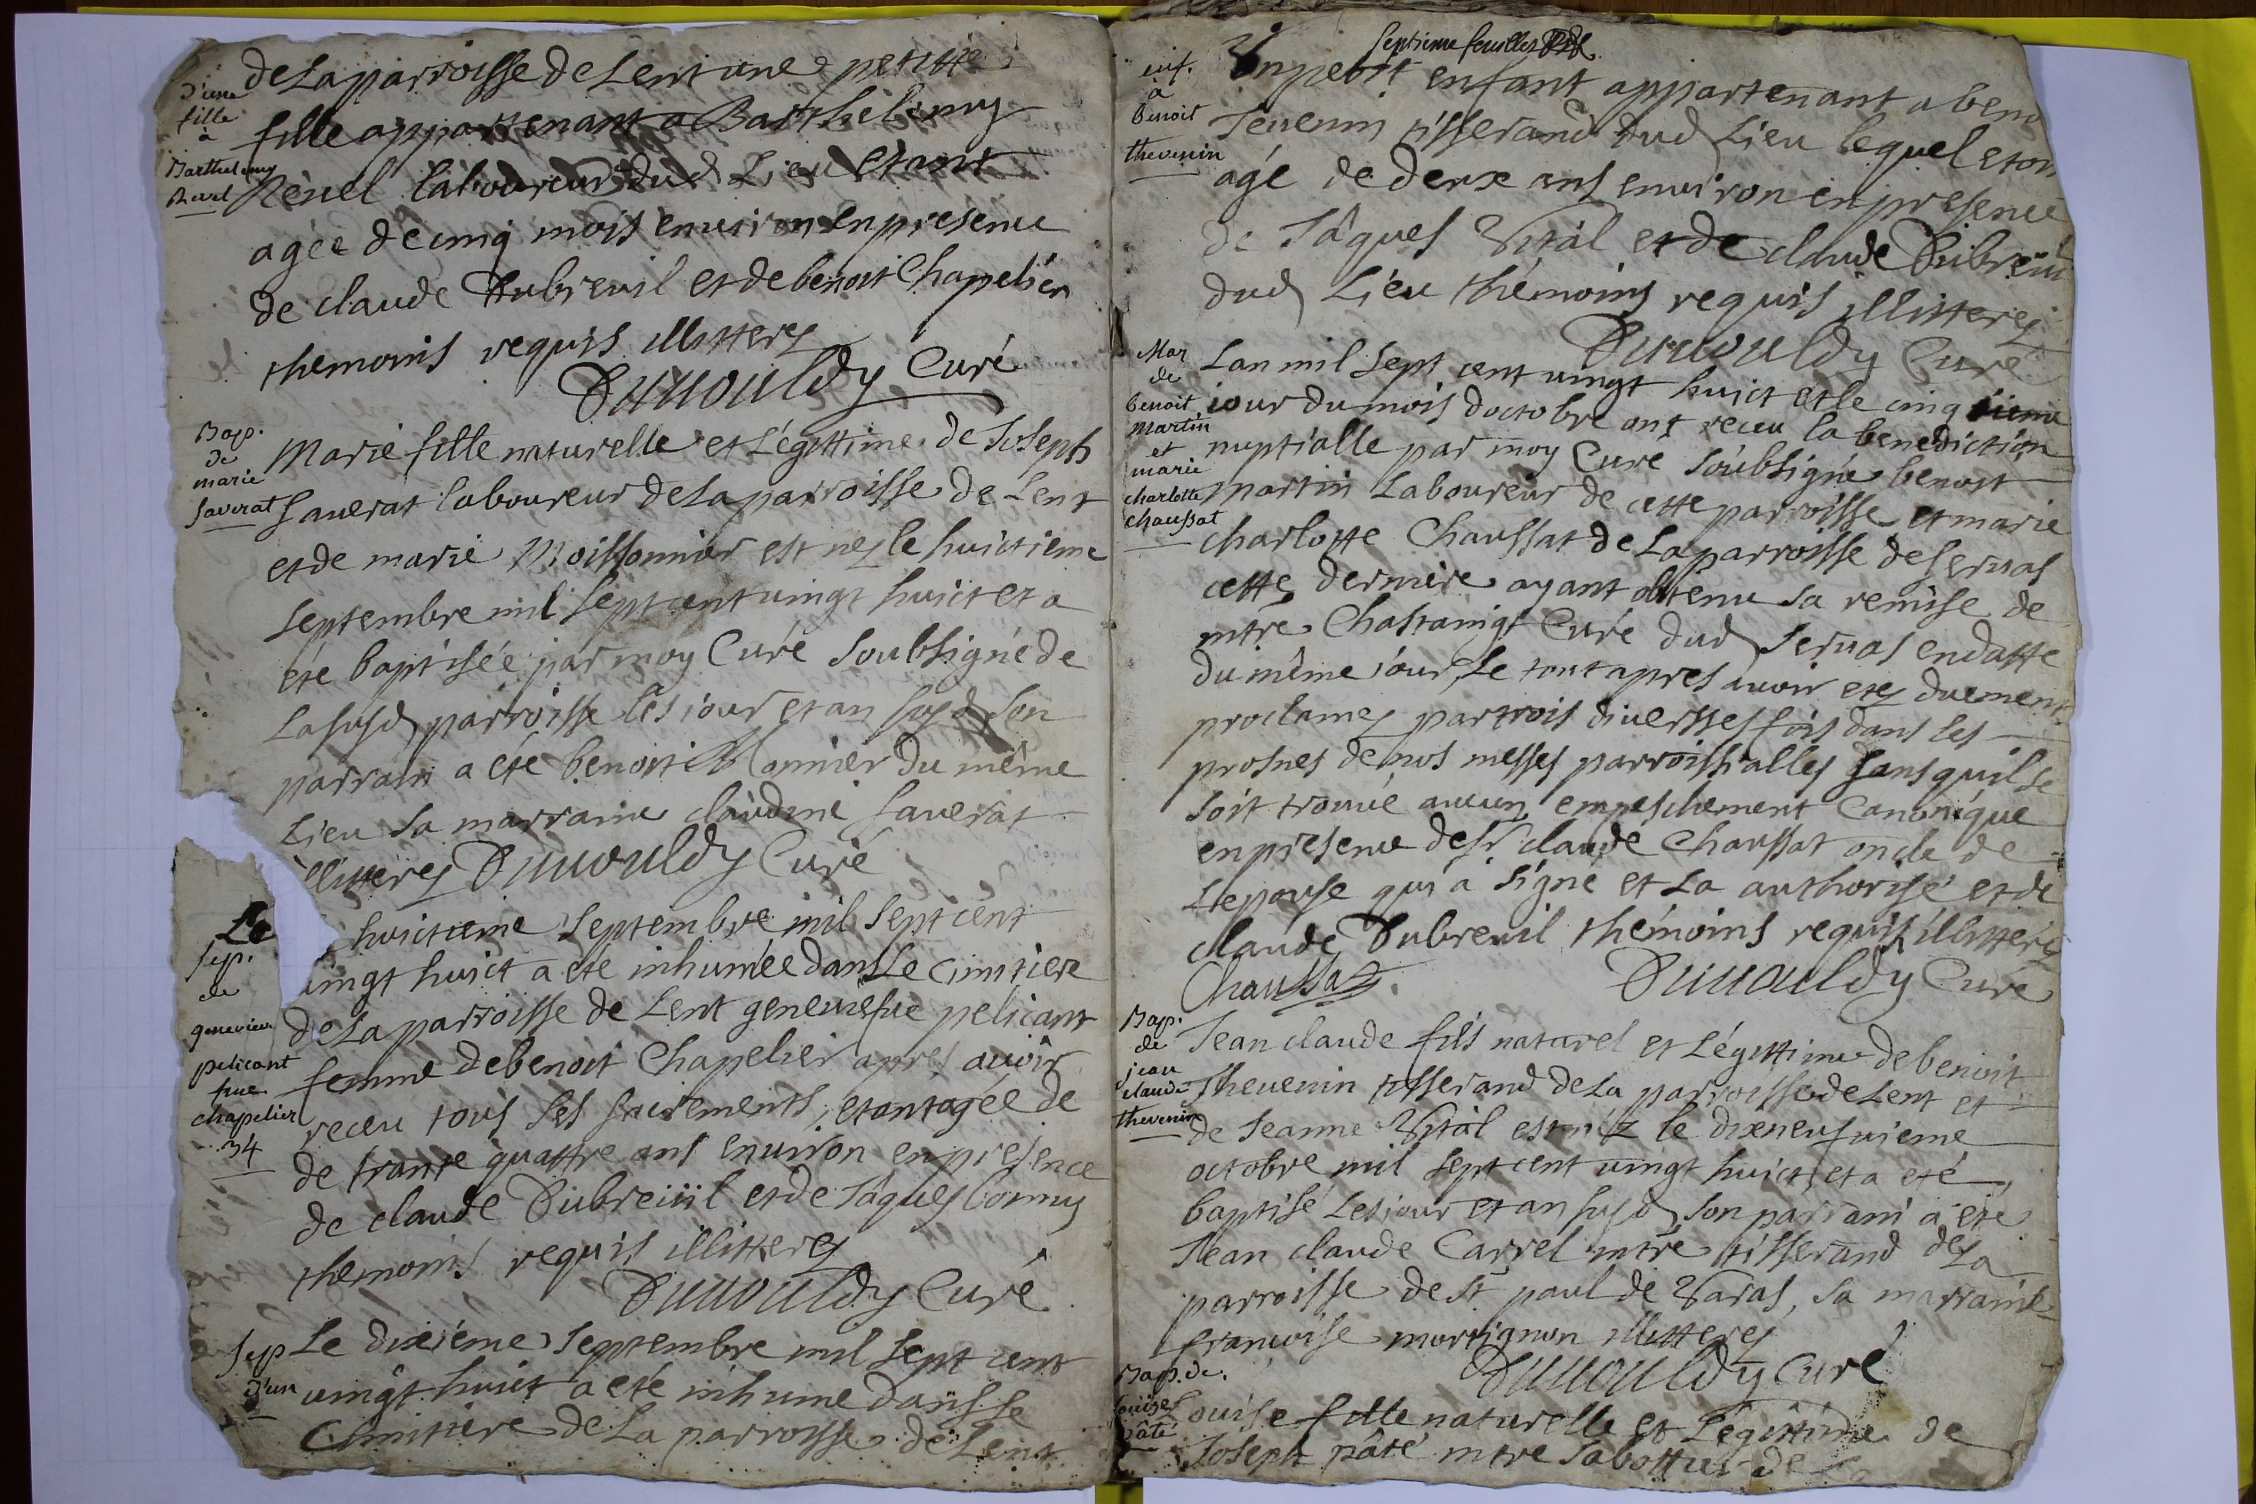 de La parroisse de Lent une petitte
d'une
fille
à
Barthelemy
Revel
fille appartenant a Barthelemy
Revel laboureur dud Lieu etant
agée de cinq mois environ en presence
de claude Dubreuil et de benoit Chapelier
themoins requis illitterez
Duvouldy Curé
Bap.
de
marie
saverat
Marie fille naturelle et Légittime de Joseph
saverat laboureur de La parroisse de Lent
et de marie Moissonnier est nez le huictieme
septembre mil sept cent vingt huict et a
été baptisée par moy Curé soubsigné de
La susd parroisse les jour et an susd son
parrain a été benoit Monnier du même
Lieu sa marraine claudine saverat
illitterez Duvouldy Curé
sep.
de
genevieve
pelicant
fme
chapelier
34
Le huictieme septembre mil sept cent
vingt huict a eté inhumée dans Le Cimitiere
de La parroisse de Lent geneviefve pelicant
femme de benoit Chapelier apres avoir
receu tous ses sacrements, etant agée de
de trante quattre ans environ en presence
de claude Dubreüil et de Jâques Connus
themoins requis illitterez
Duvouldy Curé
sep
d'un
Le dixiéme septembre mil sept cent
vingt huict a eté inhumé dans Le
Cimitiere de La parroisse de Lent
septieme feuillet
enf.
à
benoit
thevenin
Un petit enfant appartenant a beno
Tevenin tisserand dud Lieu lequel eton
agé de deux ans environ en presence
de Jâques Vital et de claude Dubreuil
dud Lieu thémoins requis illitterez
Duvouldy Curé
Mar
de
benoit
martin
et
marie
charlotte
chaussat
Lan mil sept cent vingt huict et le cinq sieme
jour du mois doctobre ont receu la benediction
nuptialle par moy Curé soubsigné benoit
martin Laboureur de cette parroisse et marie
charlotte Chaussat de La parroisse de servas
cette derniere ayant obtenu sa remise de
mtre Chastaingt Curé dud servas en datte
du même jour, Le tout apres avoir etez duement
proclamez par trois diversses fois dans les
prosnes de nos messes parroissialles sans quil se
soit trouvé aucun empeschement Canonique
en presence de sr claude Chaussat oncle de
Lepouse qui a signé et La authorisé et de
claude Dubreuil thémoins requis illitterez
Chaussat
Duvouldy Curé
Bap.
de
jean
claude
thevenin
Jean claude fils naturel et Légittime de benoit
Thevenin tisserand de La parroisse de Lent et
de Jeanne Vital est néz le dixneufvieme
octobre mil sept cent vingt huict et a eté
baptisé Les jour et an susd son parrain a eté
Jean claude Carrel mtre tisserand de La
parroisse de st paul de Varas, sa marraine
francoise mortignon illitterez
Duvouldy Curé
Bap. de
Louise
pâté
Louise fille naturelle et Légittime de
Joseph pâté mtre sabottier de La